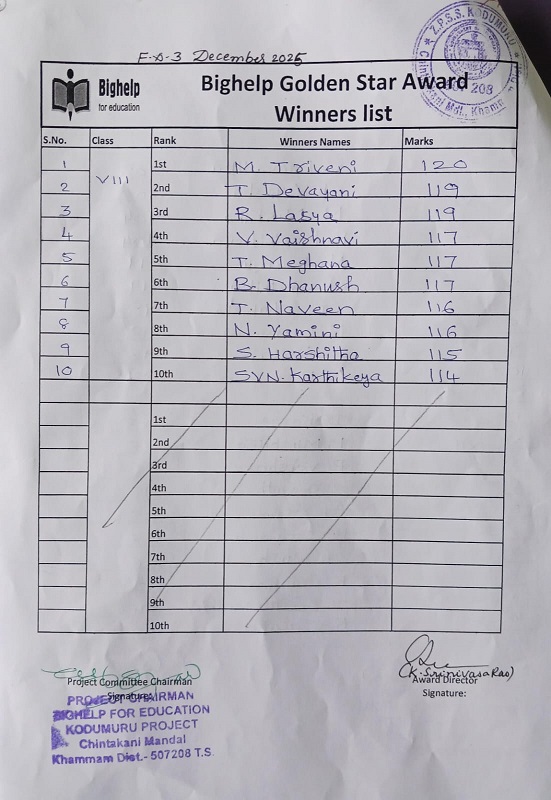 F-A-3 December 2025
Z.P.S.S. KODUMURU
Chintakani Mdl., Khamm
208
Bighelp
for education
Bighelp Golden Star Award
Winners list
S.No. Class Rank Winners Names Marks
1 VIII 1st M. Triveni 120
2 2nd T. Devayani 119
3 3rd R. Lasya 119
4 4th V. Vaishnavi 117
5 5th T. Meghana 117
6 6th B. Dhanush 117
7 7th T. Naveen 116
8 8th N. Yamini 116
9 9th S. Harshitha 115
10 10th SVN. Karthikeya 114
1st
2nd
3rd
4th
5th
6th
7th
8th
9th
10th
Project Committee Chairman
Signature:
PROJECT CHAIRMAN
BIGHELP FOR EDUCATION
KODUMURU PROJECT
Chintakani Mandal
Khammam Dist.- 507208 T.S.
(K. Srinivasa Rao)
Award Director
Signature: